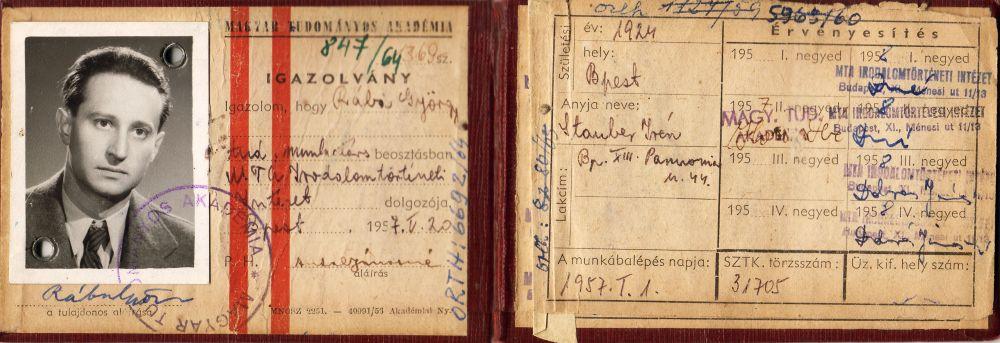 MAGYAR TUDOMÁNYOS AKADÉMIA
847/64
1369 sz.
IGAZOLVÁNY
Igazolom, hogy Rába György
tud. munkatárs beosztásban
MTA Irodalomtörténeti
Intézet dolgozója.
Bpest, 1957. I. 20
P. H.
aláírás
a tulajdonos aláírása
MNOSZ 2251. — 40091/53 Akadémiai Ny.
ORTH 1692/64
MAGYAR TUDOMÁNYOS AKADÉMIA
orth 1727/59
5965/60
Születési
év: 1924
hely:
Bpest
Anyja neve:
Stauber Irén
Lakcím:
Bp. XIII. Pannonia
u. 44.
A munkábalépés napja:
1957. I. 1.
Érvényesítés
195 I. negyed
195 I. negyed
MTA IRODALOMTÖRTÉNETI INTÉZET
Budapest, XI., Ménesi ut 11/13
1957 II. negyed
1958 II. negyed
MAGY. TUD.
AKADÉMIA
INTÉZET
Budapest, XI., Ménesi ut 11/13
195 III. negyed
1958 III. negyed
MTA IRODALOMTÖRTÉNETI
Budapest
195 IV. negyed
1958 IV. negyed
MTA IRODALOMTÖRTÉNETI
Budapest
SZTK. törzsszám:
31705
Üz. kif. hely szám: